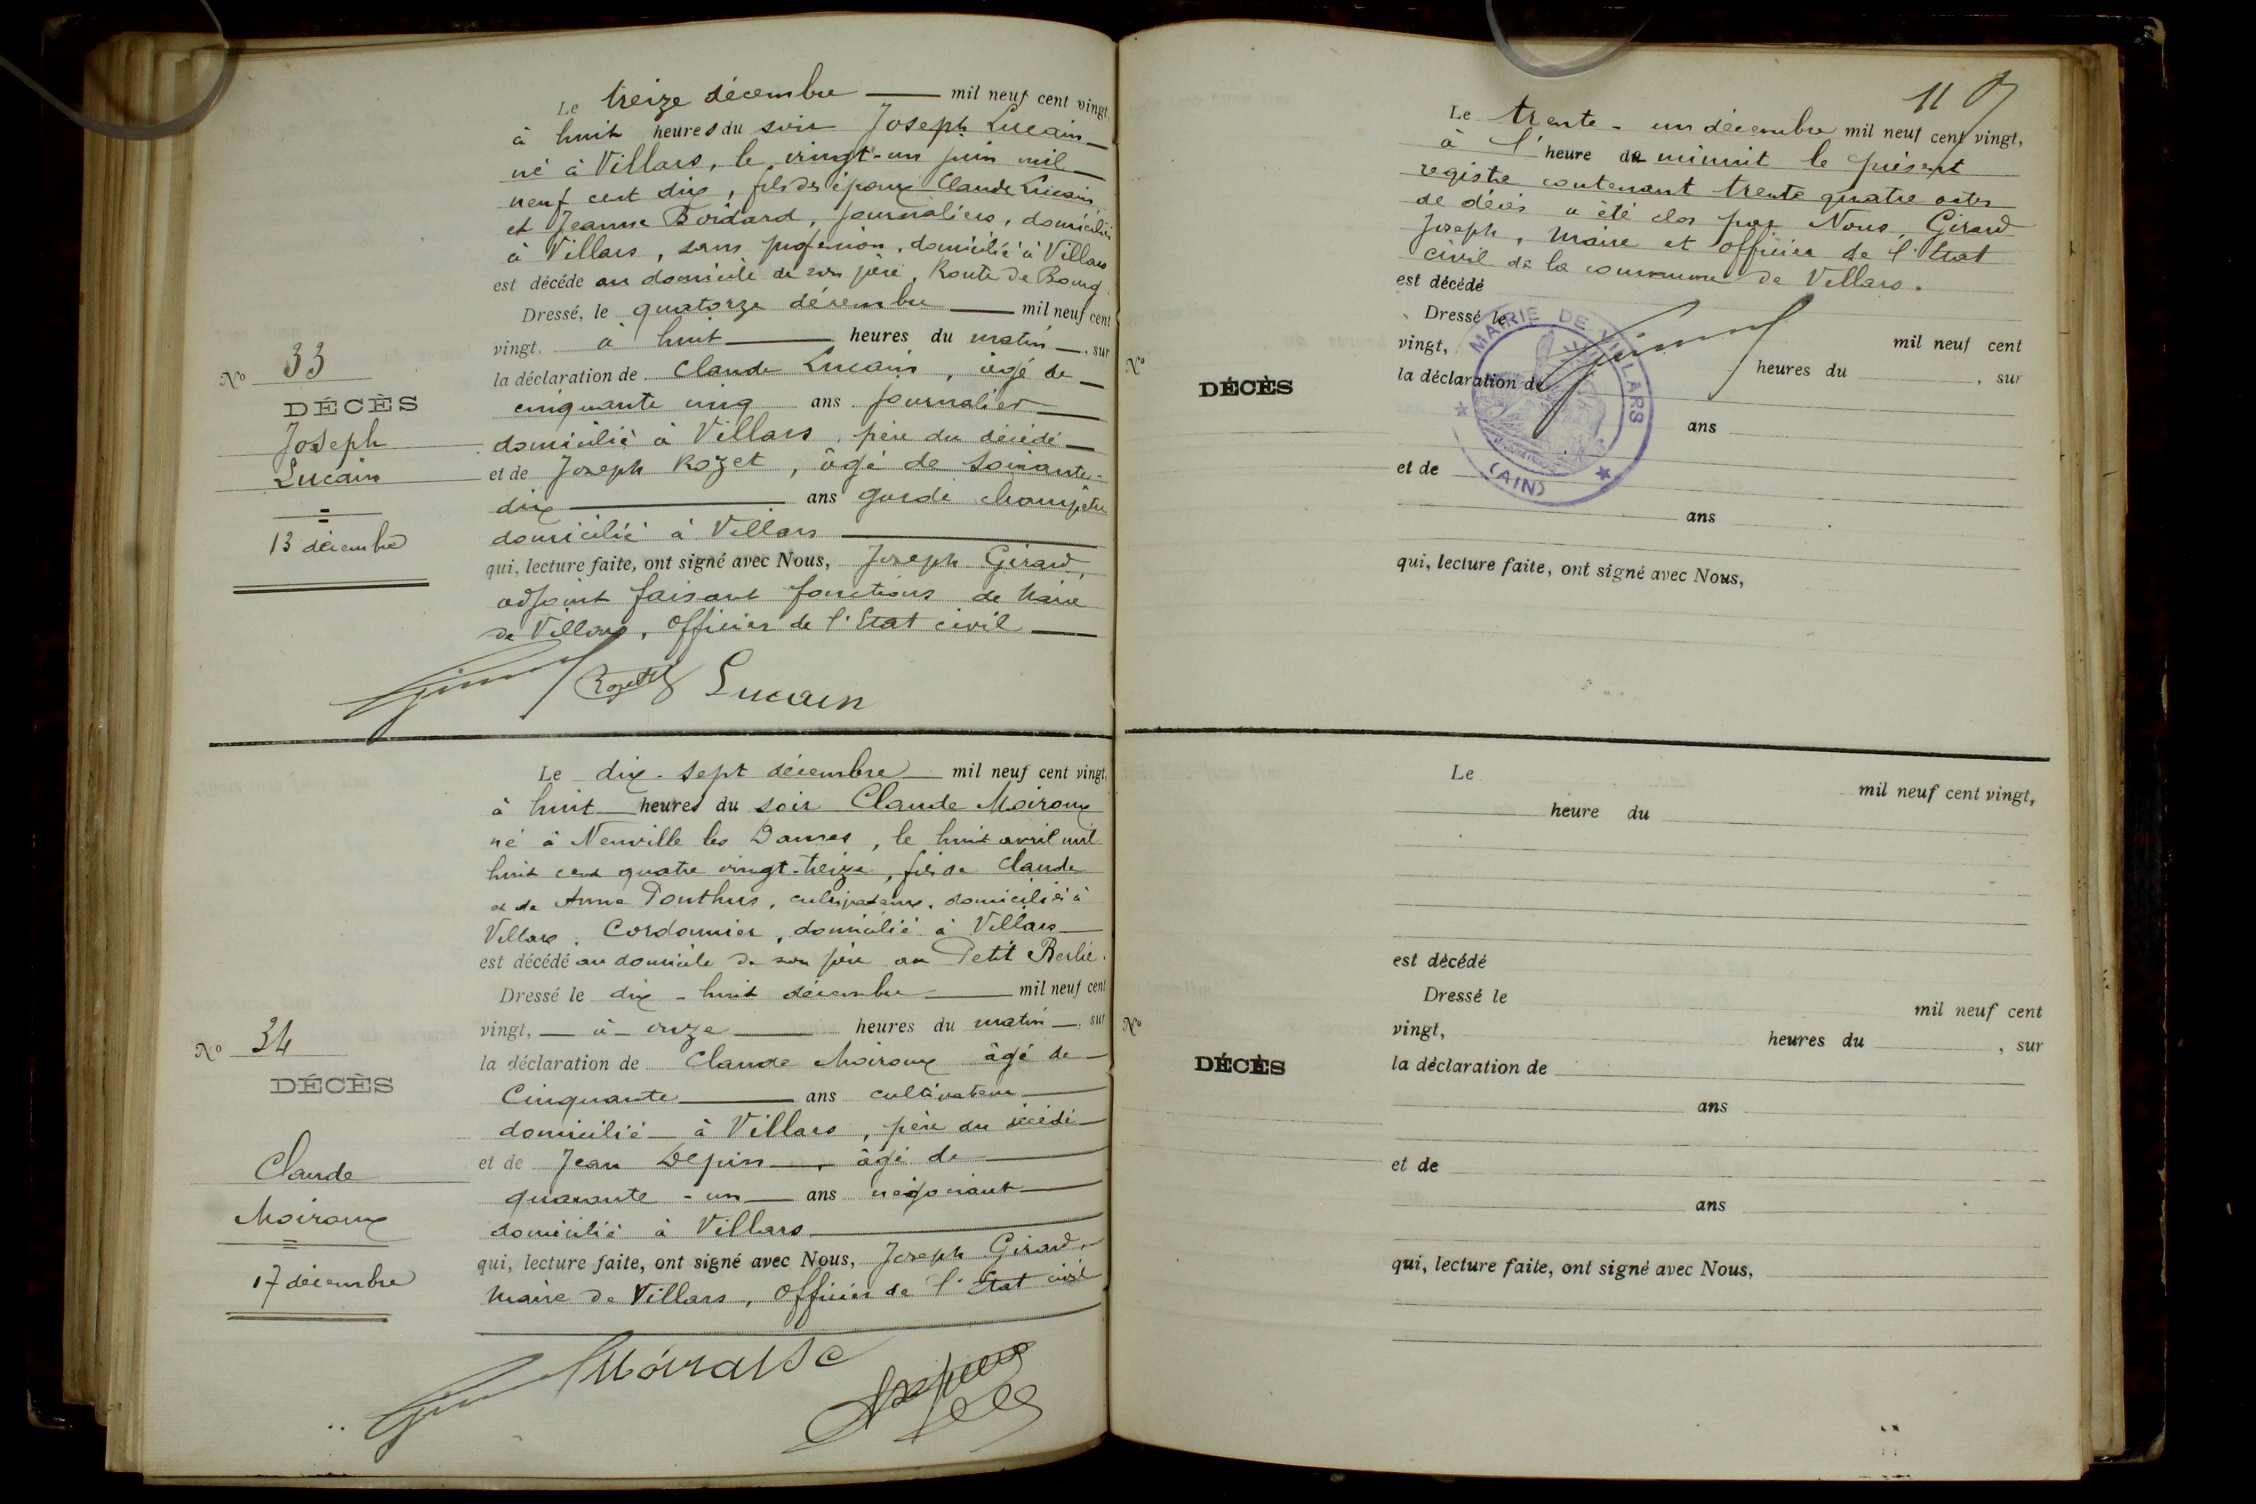 Le treize décembre mil neuf cent vingt,
à huit heures du soir Joseph Lucain
né à Villars, le vingt-un juin mil
neuf cent dix, fils des époux Claude Lucain
et Jeanne Boidard, journaliers, domiciliés
à Villars, sans profession, domicilié à Villars
est décédé au domicile de son père, Route de Bourg.
Dressé, le quatorze décembre mil neuf cent
vingt, à huit heures du matin, sur
la déclaration de Claude Lucain, âgé de
cinquante cinq ans journalier
domicilié à Villars, père du décédé
et de Joseph Rozet, âgé de soixante-
dix ans garde champêtre
domicilié à Villars
qui, lecture faite, ont signé avec Nous, Joseph Girard,
adjoint faisant fonctions de Maire
de Villars, Officier de l'Etat civil
Rozet Lucain
No 33
DÉCÈS
Joseph
Lucain
13 décembre
Le dix-sept décembre mil neuf cent vingt,
à huit heures du soir Claude Moiroux
né à Neuville les Dames, le huit avril mil
huit cent quatre vingt-treize, fils de Claude
et de Anne Ponthus, cultivateurs, domiciliés à
Villars, Cordonnier, domicilié à Villars
est décédé au domicile de son père au Petit Berlie.
Dressé le dix-huit décembre mil neuf cent
vingt, à onze heures du matin, sur
la déclaration de Claude Moiroux âgé de
Cinquante ans cultivateur
domicilié à Villars, père du décédé
et de Jean Depin, âgé de
quarante-un ans négociant
domicilié à Villars
qui, lecture faite, ont signé avec Nous, Joseph Girard,
Maire de Villars, Officier de l'Etat civil
No 34
DÉCÈS
Claude
Moiroux
17 décembre
11
Le trente-un décembre mil neuf cent vingt,
à l'heure de minuit le présent
registre contenant trente quatre actes
de décès a été clos par Nous, Girard
Joseph, Maire et Officier de l'Etat
civil de la commune de Villars.
est décédé
Dressé le mil neuf cent
vingt, heures du , sur
la déclaration de
ans
et de
ans
qui, lecture faite, ont signé avec Nous,
No
DÉCÈS
MAIRIE DE VILLARS
(AIN)
Le mil neuf cent vingt,
heure du
est décédé
Dressé le mil neuf cent
vingt, heures du , sur
la déclaration de
ans
et de
ans
qui, lecture faite, ont signé avec Nous,
No
DÉCÈS